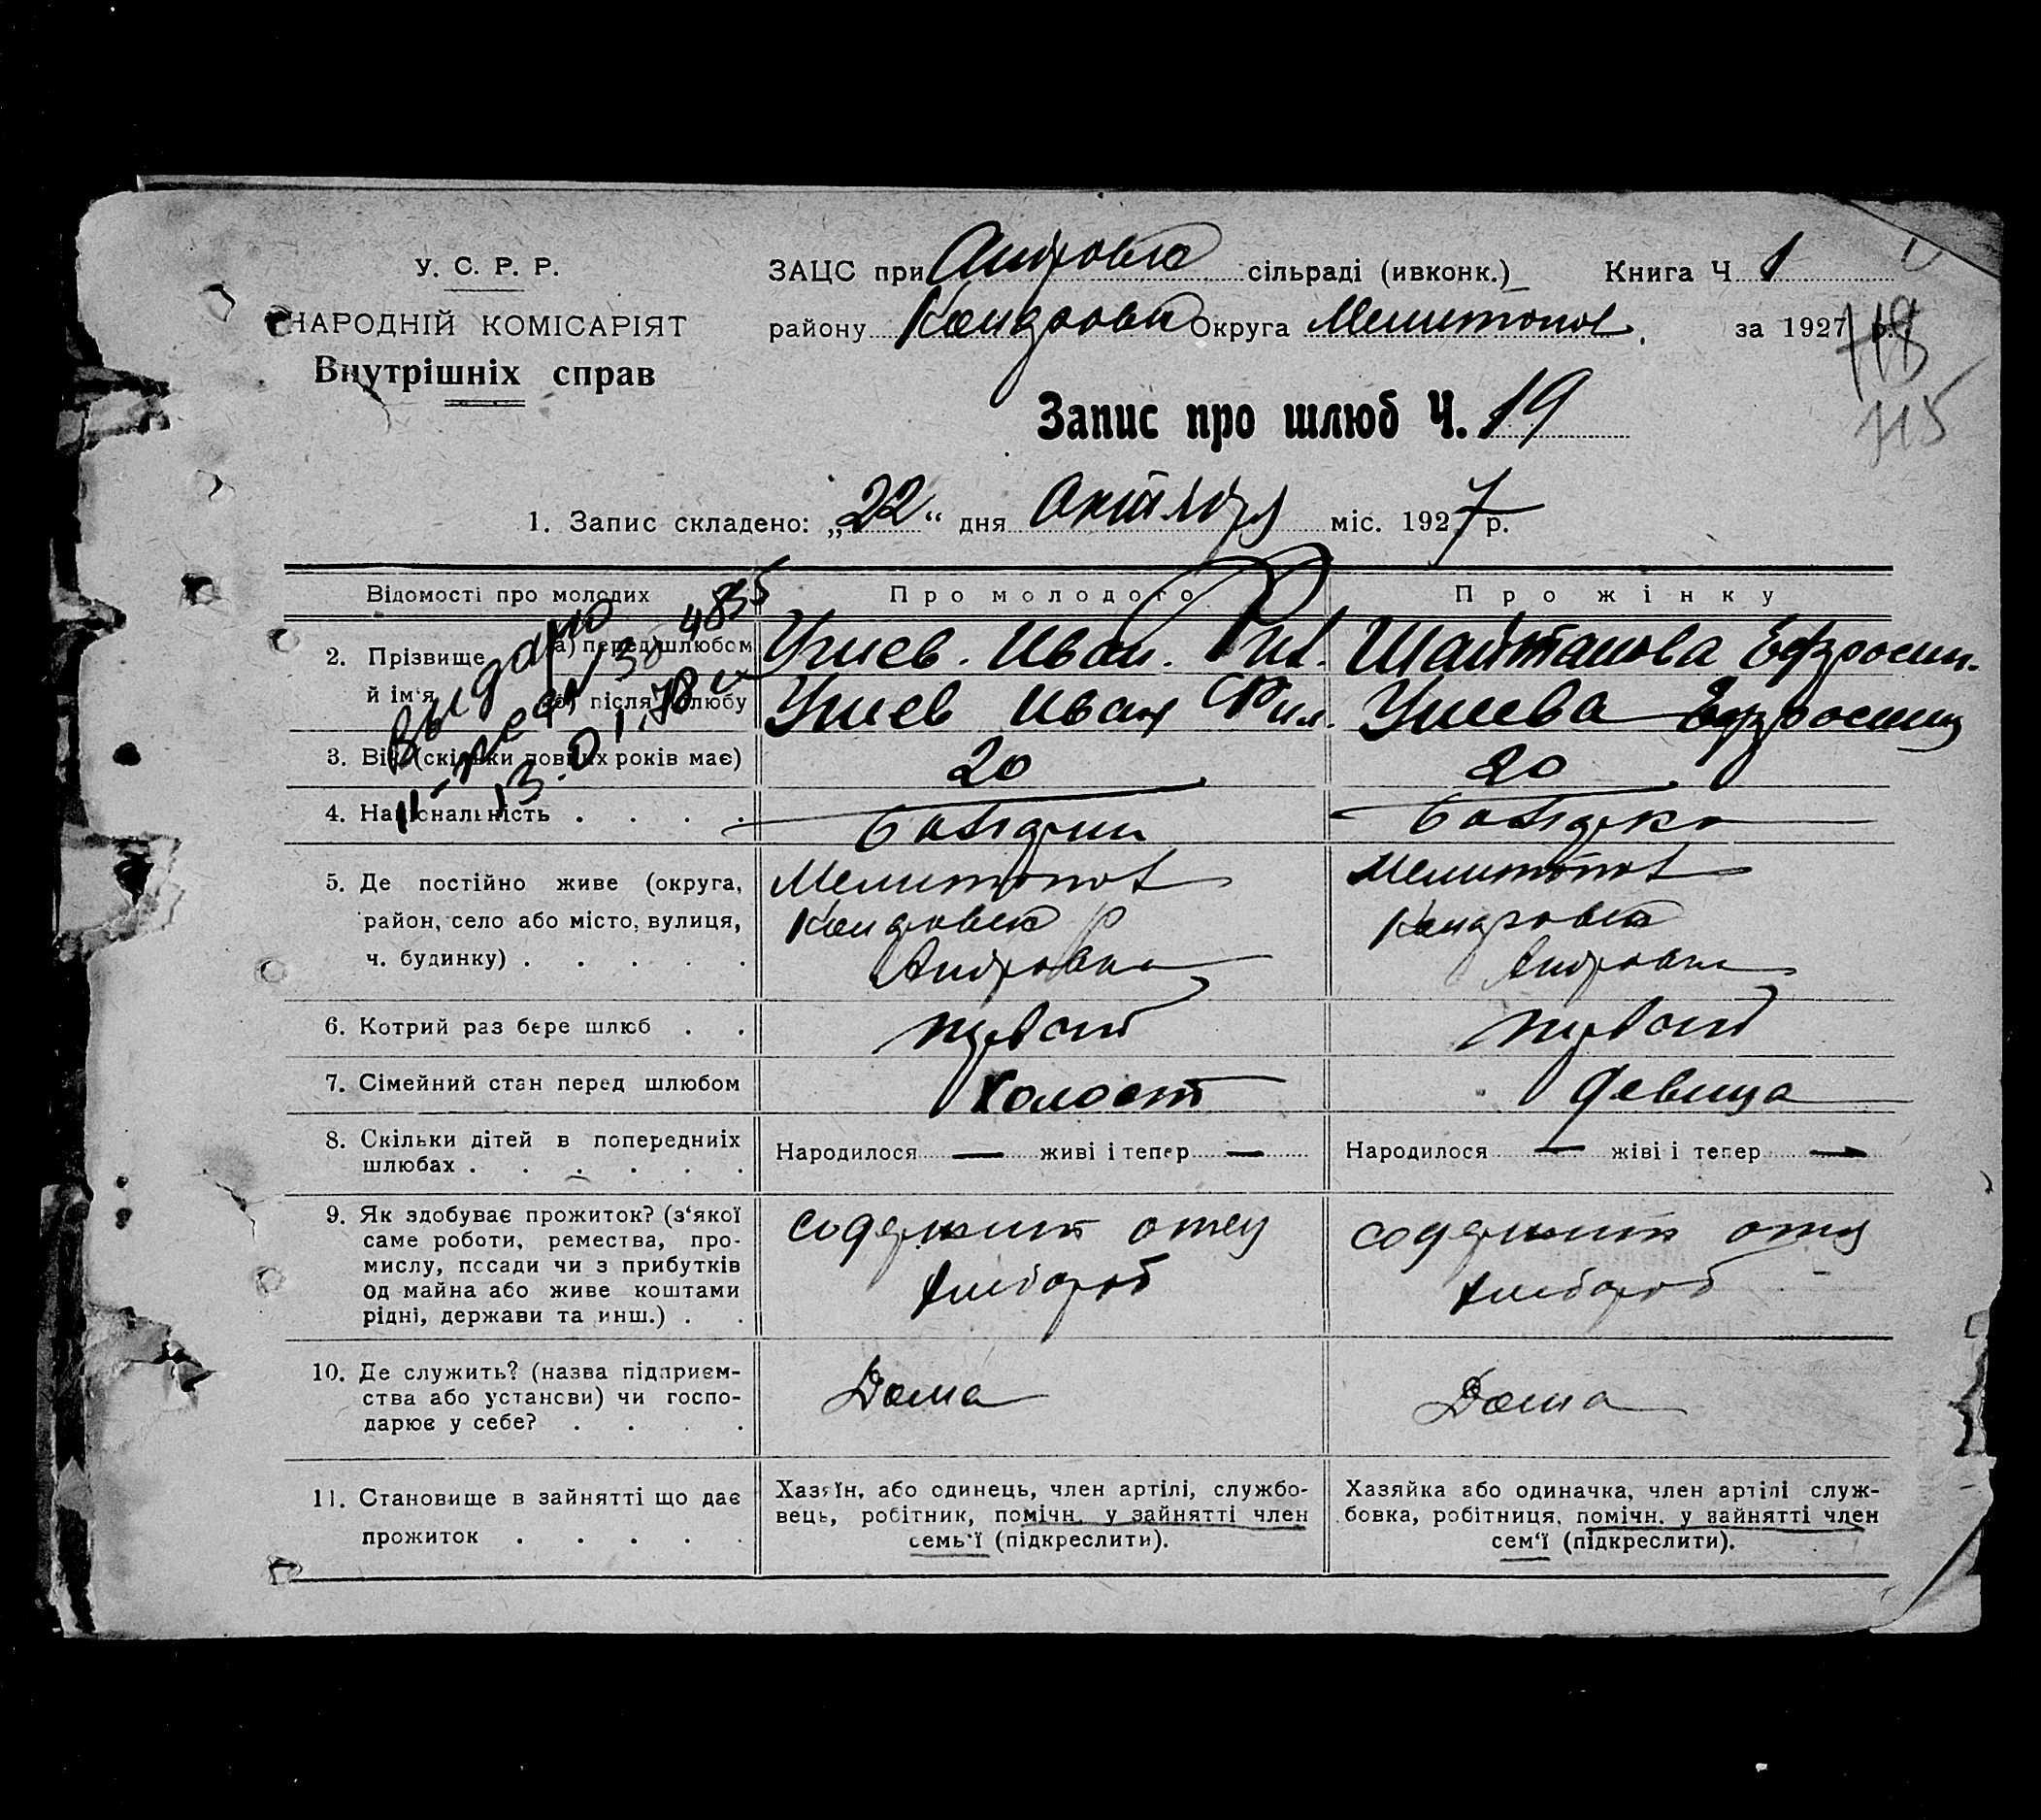 У. С. Р. Р.
НАРОДНІЙ КОМІСАРІЯТ
Внутрішніх справ
ЗАЦС при Андровке сільраді (ивконк.) Книга Ч 1
району Округа Мелитопол. за 1927 р.
118
115
Запис про шлюб Ч. 19
1. Запис складено: „22“ дня Октября міс. 1927 р.
Відомості про молодих Про молодого Про жінку
2. Прізвище й ім'я
а) перед шлюбом Иван Фил. Шайтанова Ефросин.
б) після шлюбу Иван Фил. Ефросиния
3. Вік (скільки повних років має) 20 20
4. Національність . . . . Болгарин Болгарка
5. Де постійно живе (округа, Мелитопол Мелитопол
район, село або місто, вулиця,
ч. будинку) . . . . . Андровка Андровка
6. Котрий раз бере шлюб . . первый первый
7. Сімейний стан перед шлюбом Холост девица
8. Скільки дітей в попередниіх Народилося — живі і тепер — Народилося — жіві і тепер —
шлюбах . . . . . .
9. Як здобуває прожиток? (з‘якої содержит отец содержит отец
саме роботи, ремества, про-
мислу, посади чи з прибутків хлебороб хлебороб
од майна або живе коштами
рідні, держави та инш.) . .
10. Де служить? (назва підприєм- Дома Дома
ства або установи) чи госпо-
дарює у себе? . . . .
11. Становище в зайнятті що дає Хазяїн, або одинець, член артілі, службо- Хазяйка або одиначка, член артілі служ-
вець, робітник, помічн. у зайнятті член бовка, робітниця, помічн. у зайнятті член
прожиток . . . . . семь‘ї (підкреслити). сем‘ї (підкреслити).
Выдано